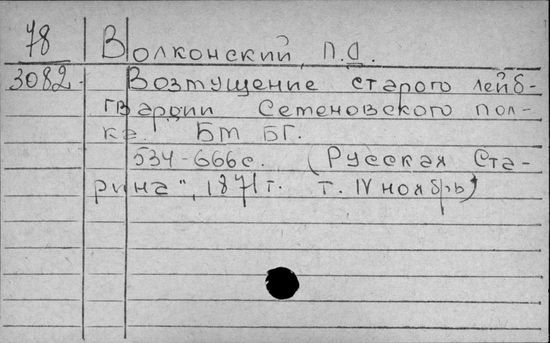 78 Волконский, П.Д.
3082. Возмущение старого лейб-
гвардии Семеновского пол-
ка. Бм БГ.
534-666с. (Русская Ста-
рина", 1871г. т. IV ноябрь)